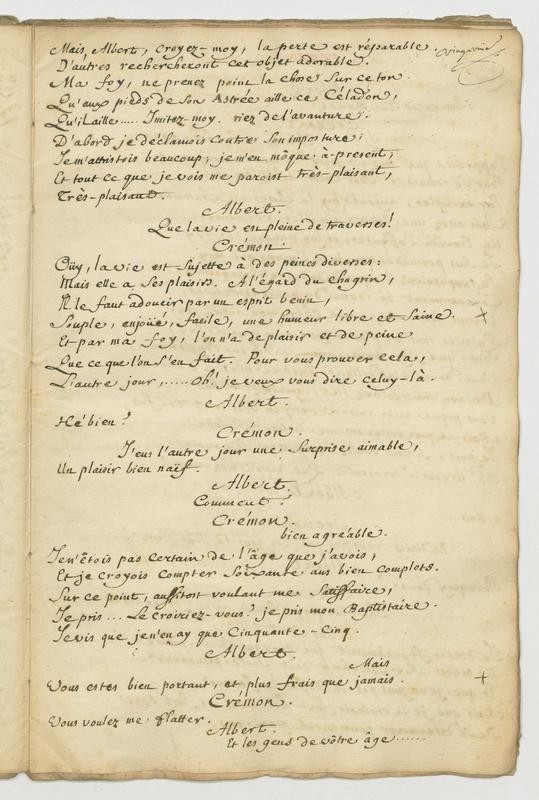 Mais, Albert, croyez-moy, la perte est réparable.
D'autres rechercheront cet objet adorable.
Ma foy, ne prenez point la chose sur ce ton.
Qu'aux pieds de son Astrée aille ce Céladon,
Qu'il aille..... Imitez-moy. riez de l'avanture;
D'abord je déclamois contre son imposture;
Je m'attristois beaucoup; je m'en môque à-present;
Et tout ce que je vois me paroist très-plaisant,
Très-plaisant.
Albert.
Que la vie est pleine de traverses!
Crémon.
Oüy, la vie est sujette à des peines diverses:
Mais elle a ses plaisirs. A l'égard du chagrin,
Il le faut adoucir par un esprit benin,
Souple, enjoüé, facile, une humeur libre et saine.
Et par ma foy, l'on n'a de plaisir et de peine
Que ce que l'on s'en fait. Pour vous prouver cela,
L'autre jour,..... Oh! je veux vous dire celuy-là.
Albert.
Hé bien?
Crémon.
J'eus l'autre jour une surprise aimable,
Un plaisir bien naïf.
Albert.
Comment?
Crémon.
bien agréable.
Je n'étois pas certain de l'âge que j'avois,
Et je croyois compter soixante ans bien complets.
Sur ce point, aussitost voulant me satisfaire,
Je pris... Le croiriez-vous? je pris mon Baptistaire.
Je vis que je n'en ay que Cinquante-Cinq.
Albert.
Mais
Vous estes bien portant, et plus frais que jamais.
Crémon.
Vous voulez me flatter.
Albert.
Et les gens de vôtre âge......